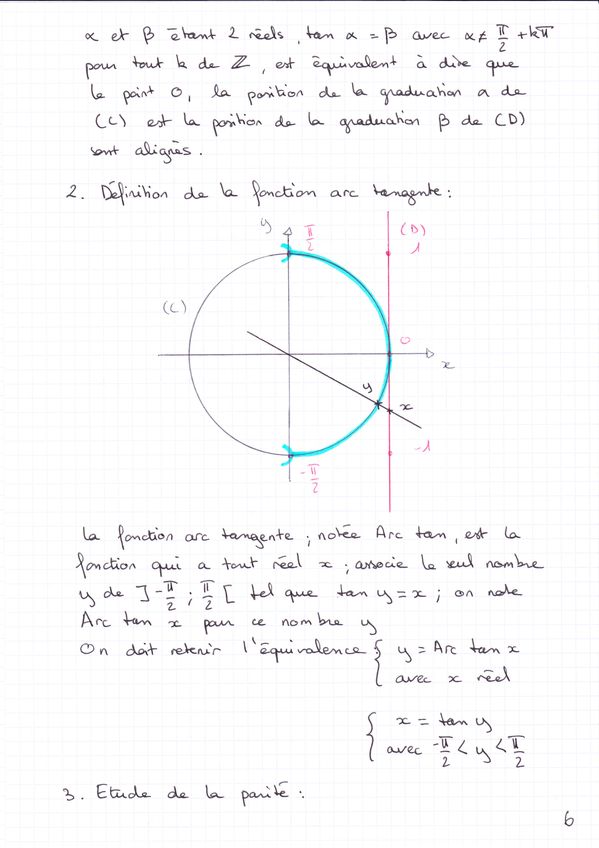 α et β étant 2 réels, tan α = β avec α ≠ π/2 + kπ
pour tout k de ℤ, est équivalent à dire que
le point O, la position de la graduation α de
(C) est la position de la graduation β de (D)
sont alignés.
2. Définition de la fonction arc tangente :
y
π/2
(D)
1
(C)
0
x
y
x
-1
-π/2
La fonction arc tangente ; notée Arc tan, est la
fonction qui a tout réel x ; associe le seul nombre
y de ]-π/2 ; π/2 [ tel que tan y = x ; on note
Arc tan x par ce nombre y
On doit retenir l'équivalence { y = Arc tan x
avec x réel
{ x = tan y
avec -π/2 < y < π/2
3. Etude de la parité :
6